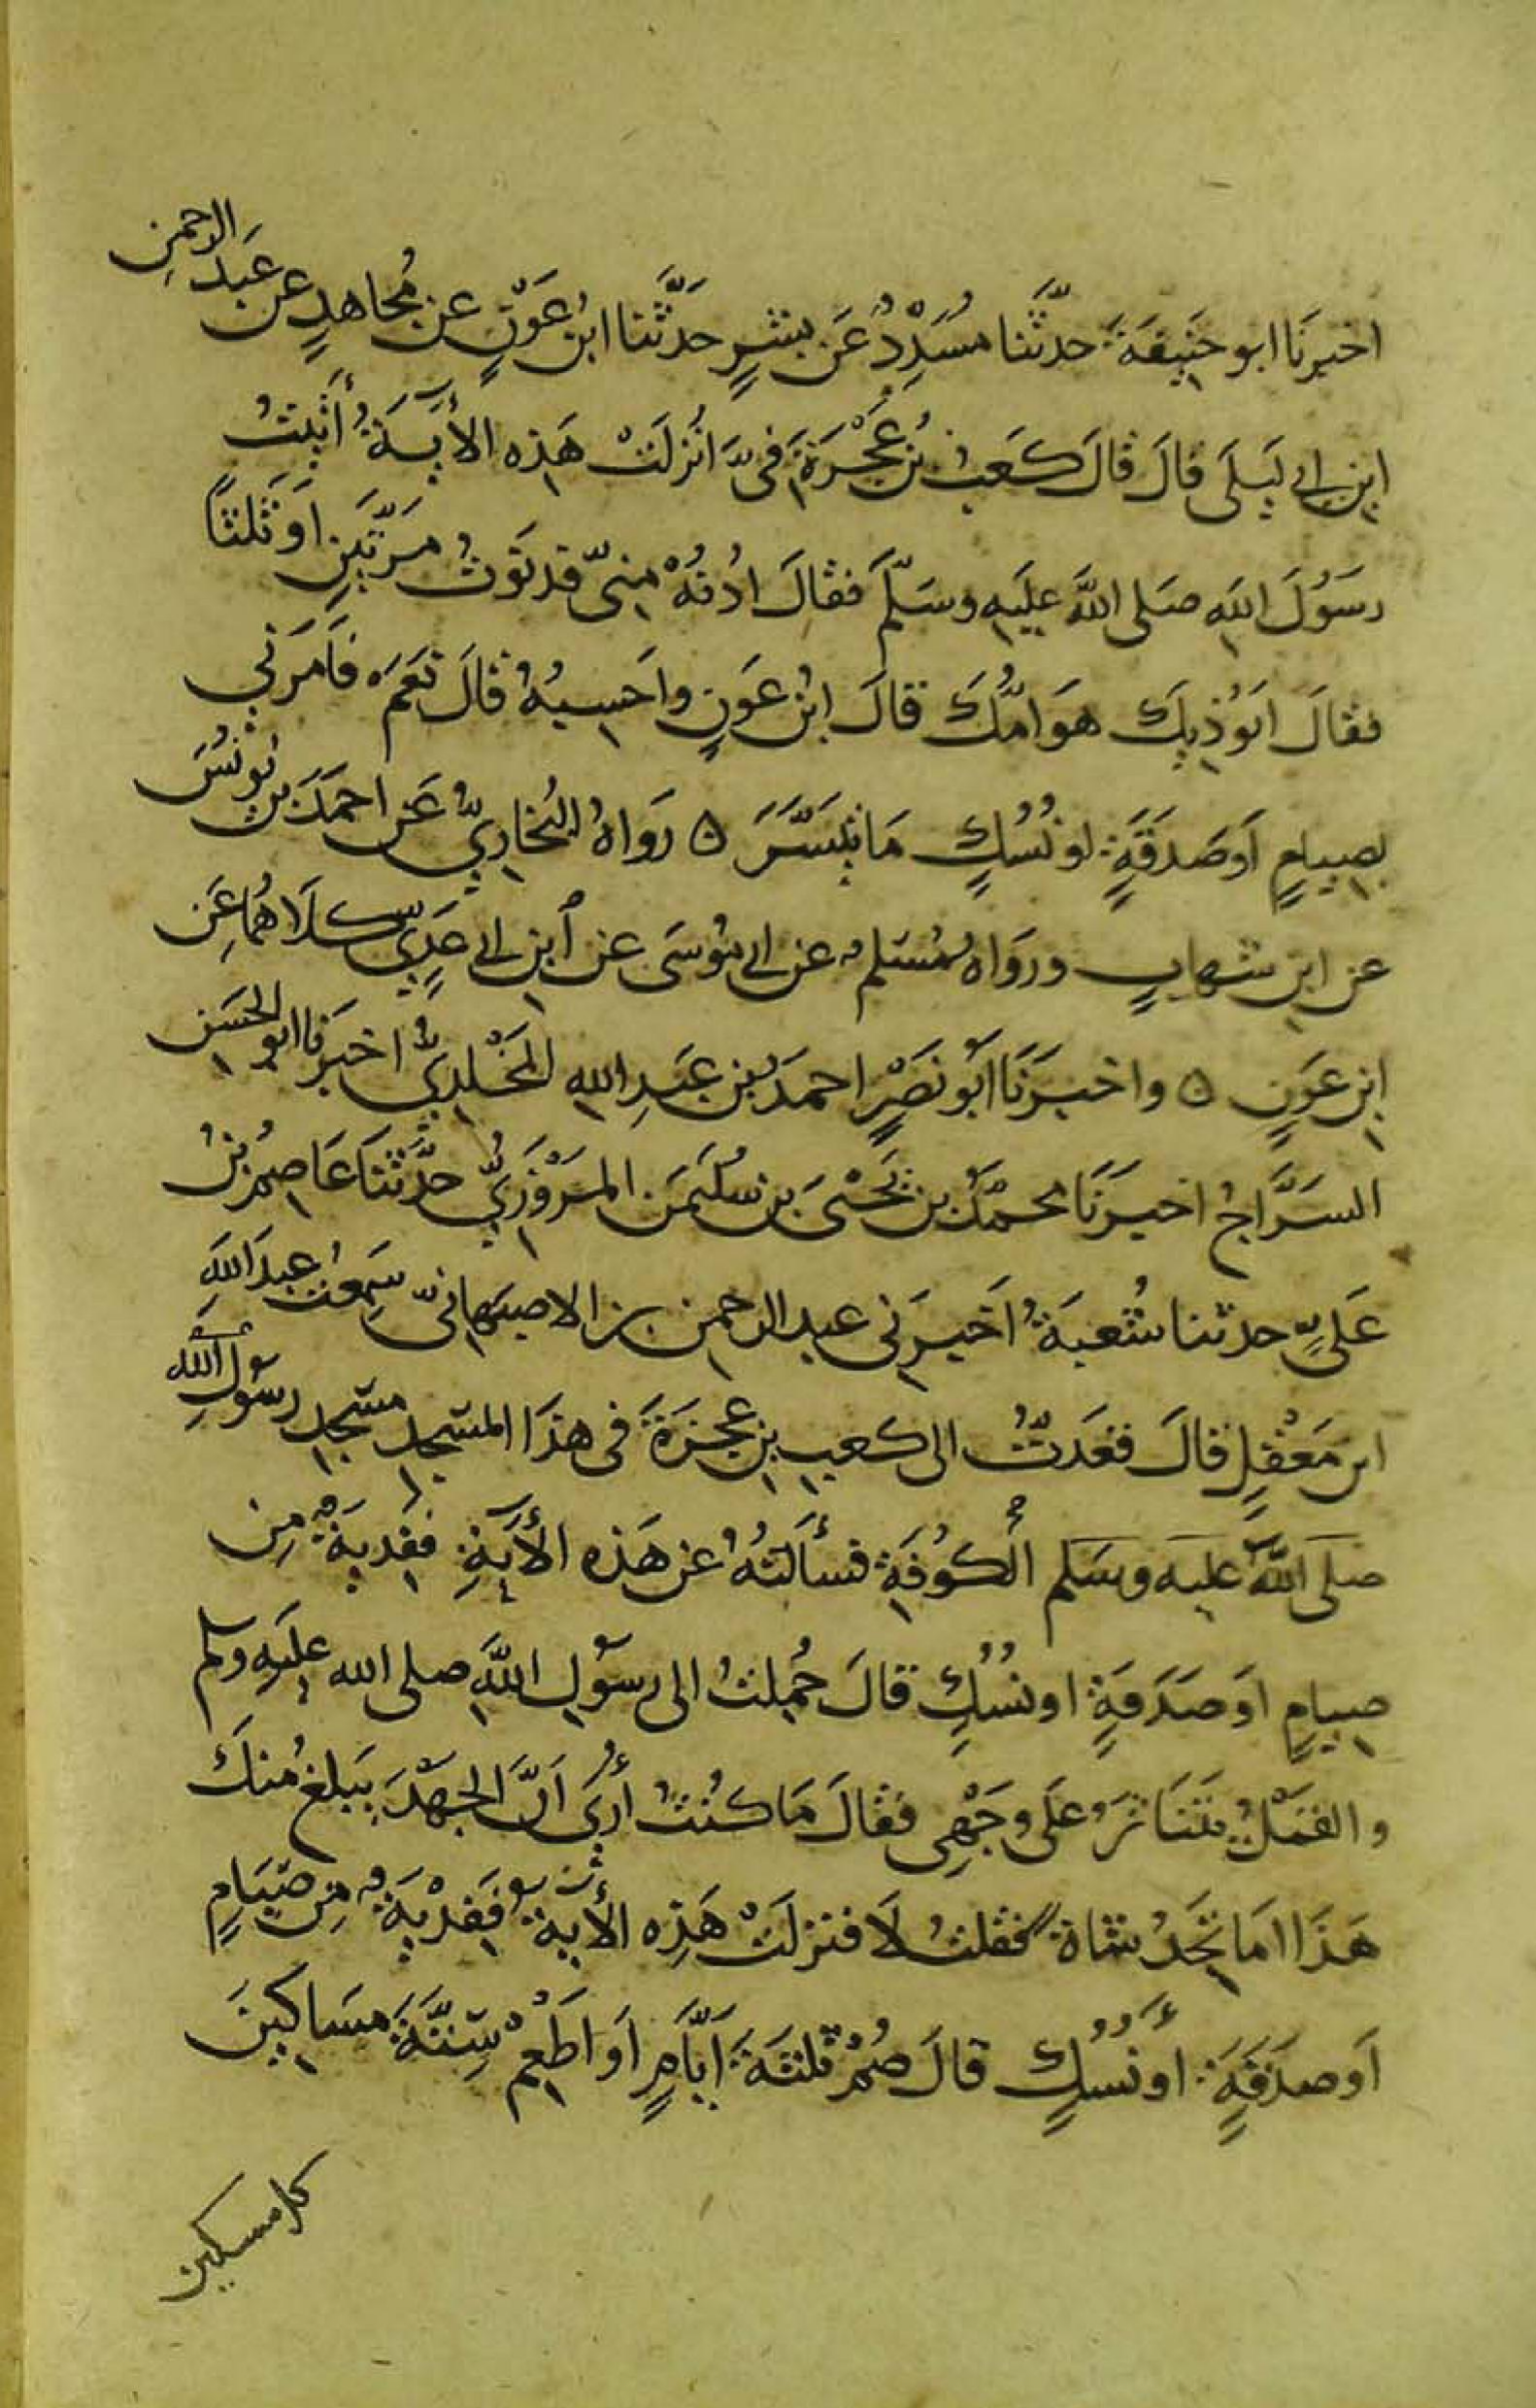 اخبرَنَا ابو حَنِيفَةَ حدَّثَنا مُسَدِّدُ عَن بِشرٍ حَدَّثَنا ابنُ عَوَنٍ عن مُجاهدٍ عن عَبدِ الرحمنِ
ابنِ ابي لَيلَى قالَ قالَ كَعبُ بنُ عُجْرَةَ فيَّ انُزلَتْ هَذِه الأيَةُ أتَيتُ
رسَوُلَ اللهِ صَلى اللهُ عليَهِ وسَلّمَ فقالَ ادُنهْ مِنيّ فدنَوتُ مرَّتَينِ اوَثَلثًا
فقالَ ايَوُذِيكَ هوَامُّكَ قالَ ابنُ عَونٍ واَحسِبهُ قالَ نَعَمَ فاَمرَني
بصِيامٍ اَوصَدقَةٍ اونُسُكٍ مَا تَيسَّرَ ه رَواهُ البُخاريُّ عَن احمَدَ بنِ يُونُسَ
عن ابنِ شهابٍ وروَاهُ مُسَلم عن ابي مُوسَى عن ابنِ ابي عَديٍّ كلاَهُما عَن
ابنِ عَونٍ ه واخبرَنَا ابَو نَصْرٍ احمدُ بنِ عَبدِ اللهِ المَخْلدِيُّ اخبَرنا ابو الحسَن
السَرَّاجُ اخبرَنَا محمَّدُ بن يَحْيىَ بن سُلَيمَن المَرْوَزِيُّ حدَّثنَا عَاصِمُ بنُ
عَلىٍّ حدثنا شُعبَةُ اَخبرَني عبد الرحمنِ بن الاصبَهانيّ سَمِعتُ عبدَ اللهِ
ابن مَعْقِلٍ قالَ قعَدتُّ الى كعبِ بنِ عجرَةَ فى هذَا المسَجدِ مسَجدِ رسَولِ الله
صلَى اللهُ عليه وسَلم الْكوُفَةِ فسألتهُ عن هَذه الأيَةِ ففِديَةٌ مِن
صِيامٍ اوَصَدَقةٍ اونسُكٍ قالَ حُمِلتُ الى رسَولِ اللهِ صلى الله عليَهِ وسلم
والقمَلُ يتَنَاثرُ عَلَى وجَهْي فقالَ مَا كنُتُ أُرَى اَنَّ الجهَدَ يَبلغ مُنكَ
هَذَا امَا تَجِدُ شاة فقلتُ لاَ فنزلَتْ هَذِه الأية فَفِديَةٌ مِن صَيَامٍ
اَوصدَقَةٍ أونُسُكٍ قالَ صُمْ ثلثَةَ ايَاَّمٍ اوَ اطَعِمْ سِتَّةَ مسَاكِينَ
كل مسكين